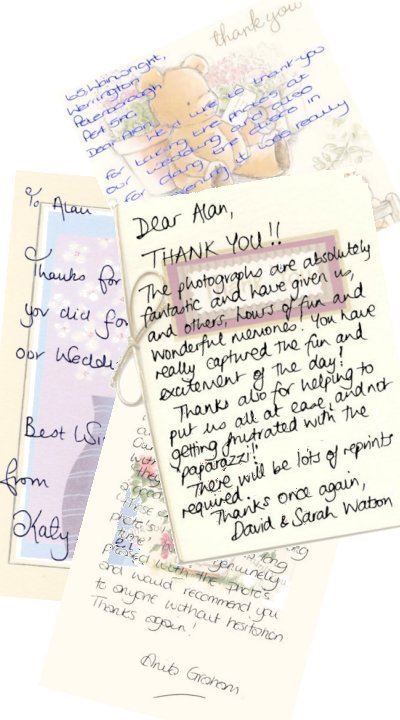 thank you
65 Wainwright,
Werrington
Peterborough
Dear Alan,
to thank-you
for taking the photos at
our wedding and also
for doing the
in
it was really
To Alan
Thanks for
you did for
our Weddi
Best Wi
from
Katy
Dear Alan,
THANK YOU!!
The photographs are absolutely
fantastic and have given us,
and others, hours of fun and
wonderful memories. You have
really captured the fun and
excitement of the day!
Thanks also for helping to
put us all at ease, and not
getting frustrated with the
"paparazzi!"
There will be lots of reprints
required.
Thanks once again,
David & Sarah Watson
time
long
genuinely
with the photos
and would recommend you
to anyone without hesitation
Thanks again!
Anita Graham